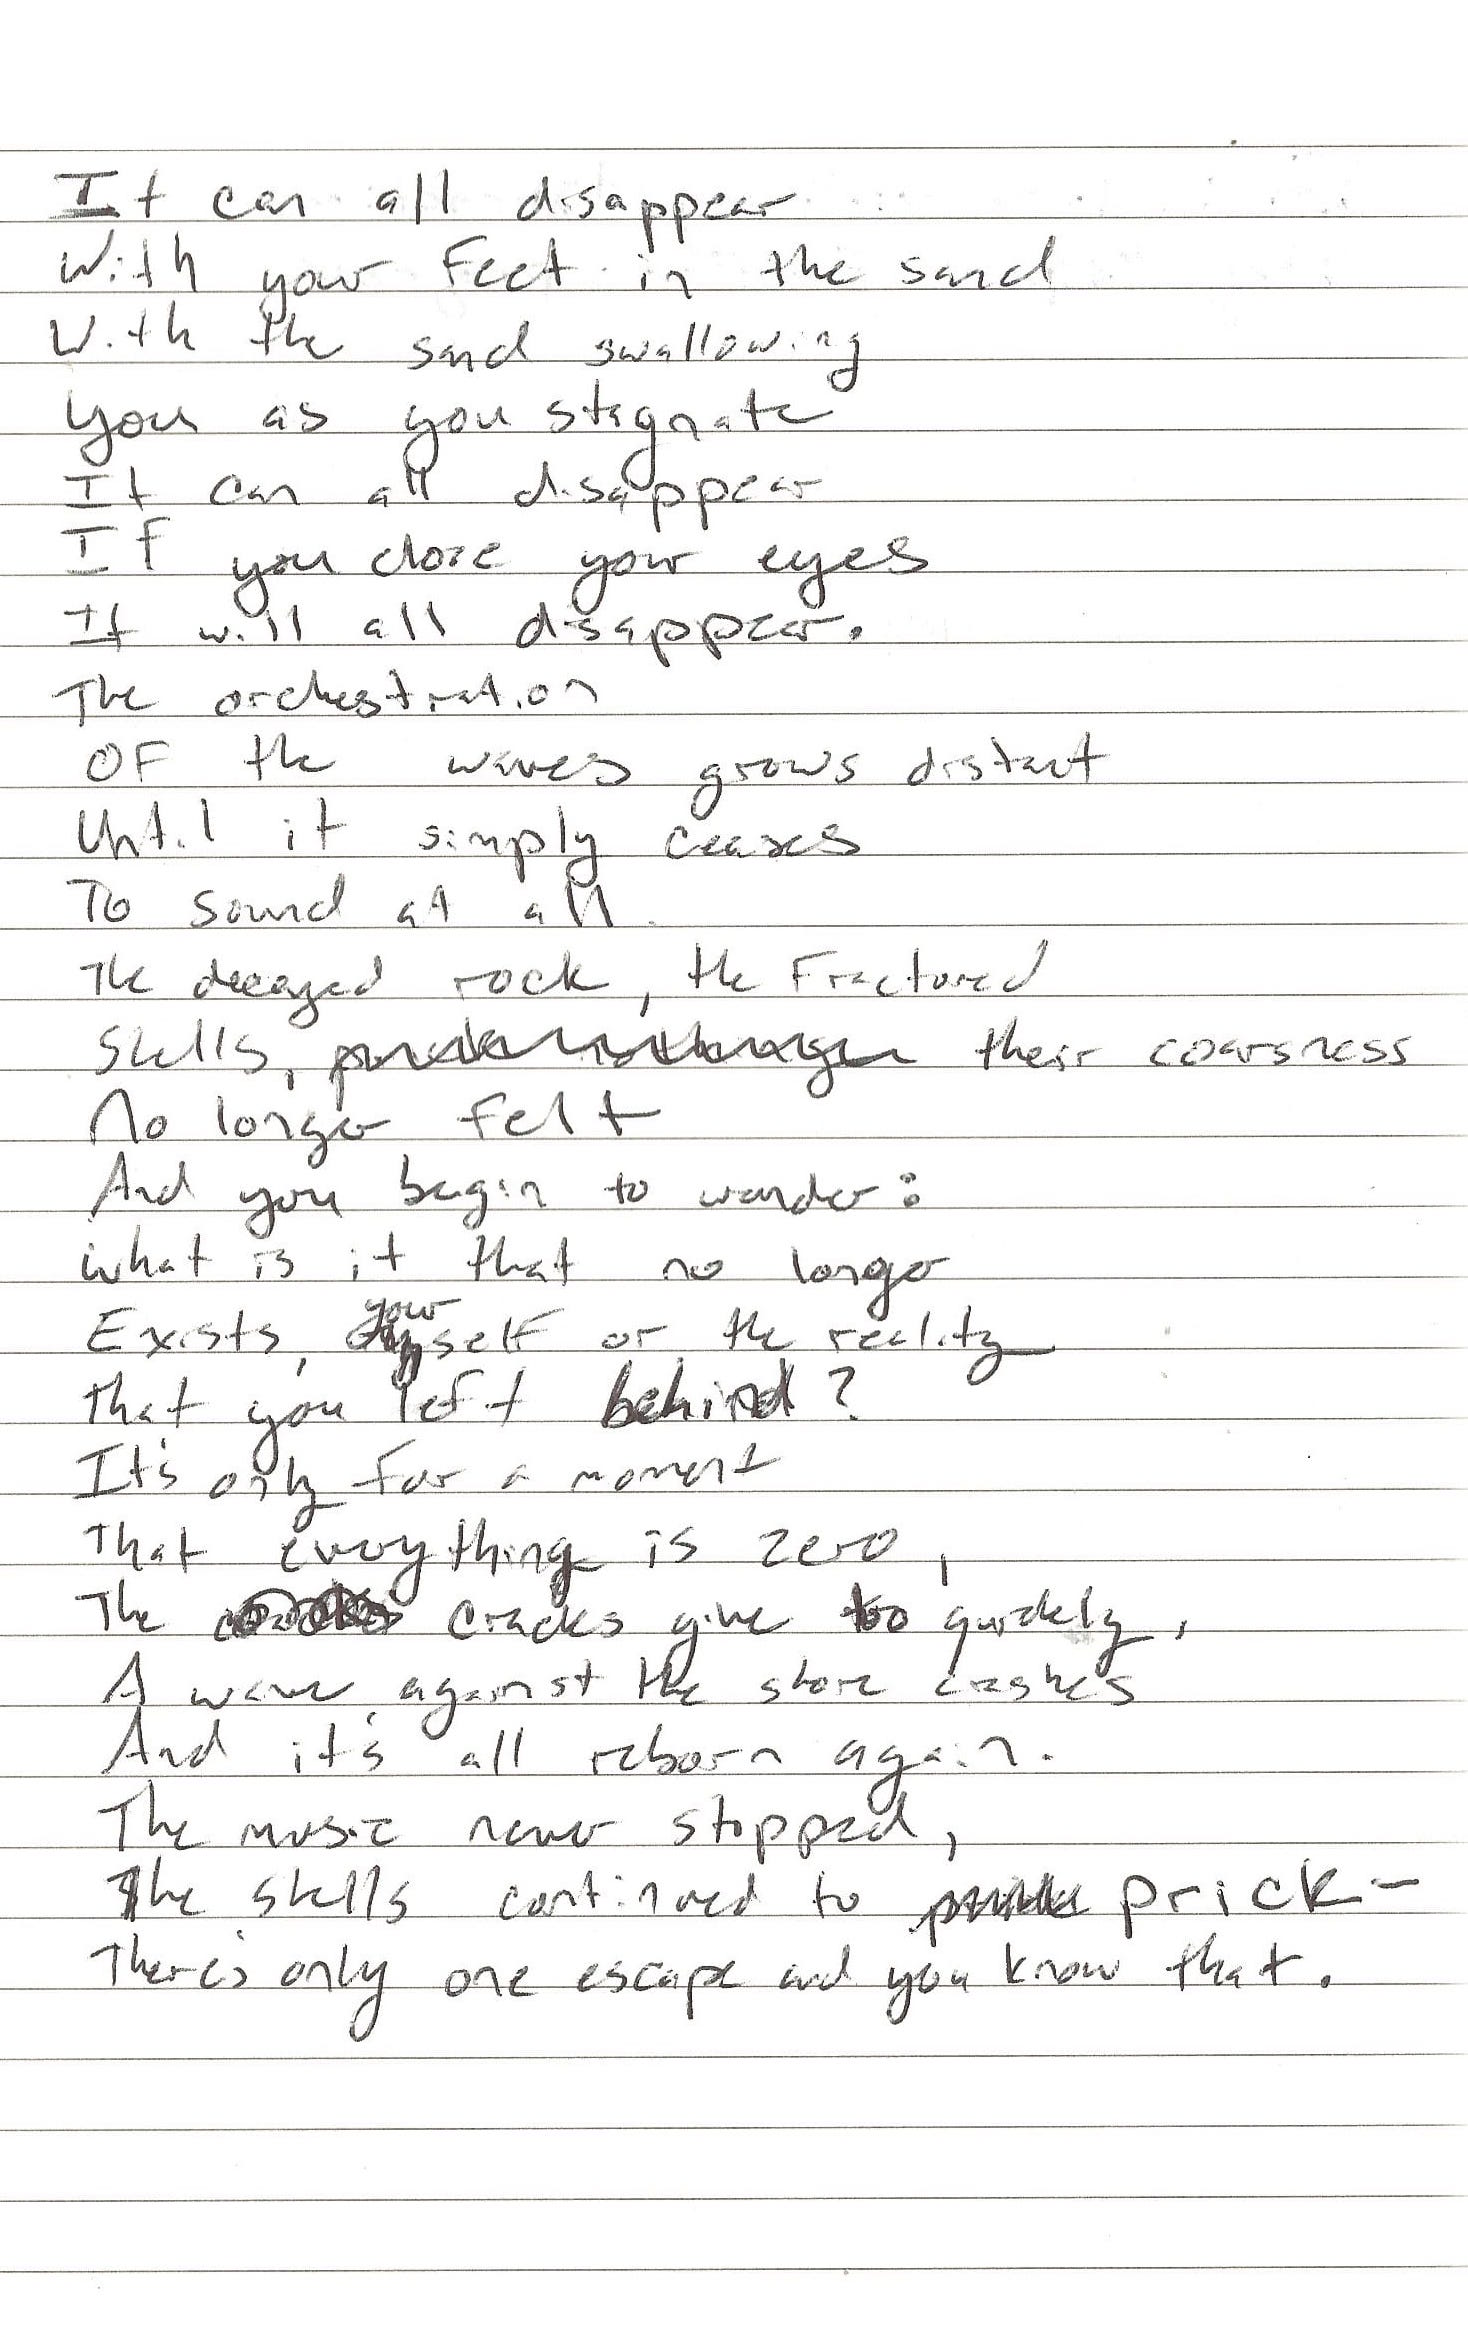 It can all disappear
With your Feet in the sand
With the sand swallowing
You as you stagnate
It can all disappear
If you close your eyes
It will all disappear.
The orchestration
OF the waves grows distant
Until it simply ceases
To sound at all.
The decayed rock, the Fractured
Shells, their coarsness
No longer felt
And you begin to wonder:
What is it that no longer
Exists, yourself or the reality
That you left behind?
It's only for a moment
That everything is zero,
The cracks give too quickly,
A wave against the shore crashes
And it's all reborn again.
The music never stopped,
The shells continued to prick-
There's only one escape and you know that.